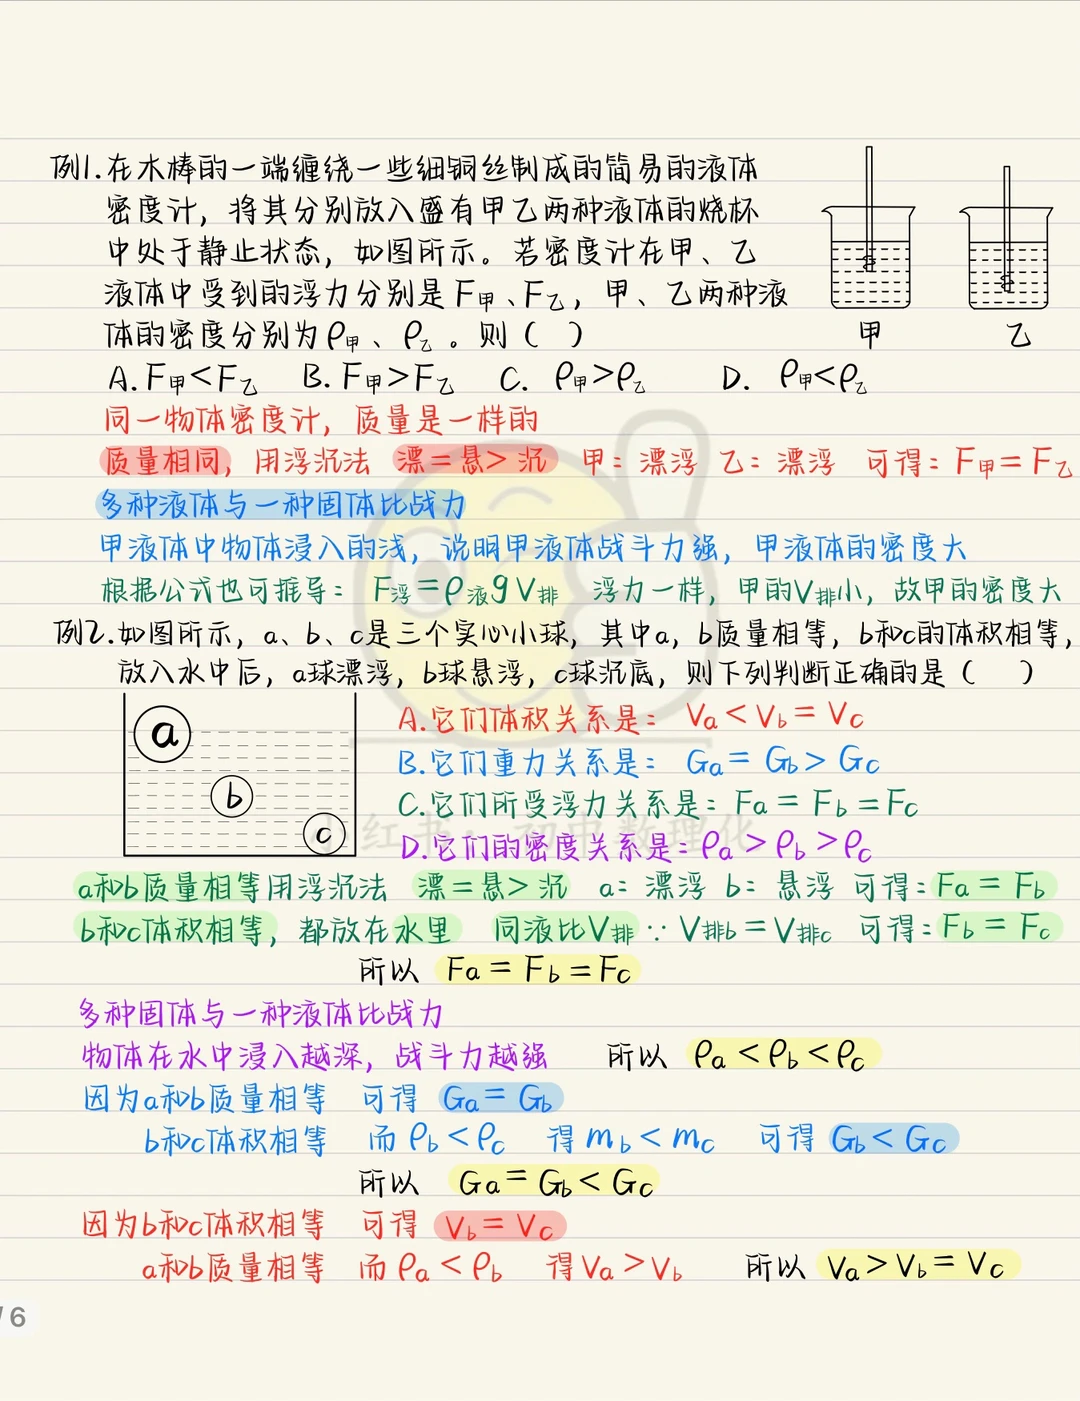 例1.在木棒的一端缠绕一些细铜丝制成的简易的液体
密度计，将其分别放入盛有甲乙两种液体的烧杯
中处于静止状态，如图所示。若密度计在甲、乙
液体中受到的浮力分别是F甲、F乙，甲、乙两种液
体的密度分别为ρ甲、ρ乙。则（ ）
甲 乙
A.F甲<F乙 B.F甲>F乙 C. ρ甲>ρ乙 D. ρ甲<ρ乙
同一物体密度计，质量是一样的
质量相同，用浮沉法 漂=悬>沉 甲：漂浮 乙：漂浮 可得：F甲=F乙
多种液体与一种固体比战力
甲液体中物体浸入的浅，说明甲液体战斗力强，甲液体的密度大
根据公式也可推导：F浮=ρ液gV排 浮力一样，甲的V排小，故甲的密度大
例2.如图所示，a、b、c是三个实心小球，其中a，b质量相等，b和c的体积相等，
放入水中后，a球漂浮，b球悬浮，c球沉底，则下列判断正确的是（ ）
a
b
c
A.它们体积关系是：Va<Vb=Vc
B.它们重力关系是：Ga=Gb>Gc
C.它们所受浮力关系是：Fa=Fb=Fc
小红书：初中数理化
D.它们的密度关系是：ρa>ρb>ρc
a和b质量相等用浮沉法 漂=悬>沉 a：漂浮 b：悬浮 可得：Fa=Fb
b和c体积相等，都放在水里 同液比V排 ∵V排b=V排c 可得：Fb=Fc
所以 Fa=Fb=Fc
多种固体与一种液体比战力
物体在水中浸入越深，战斗力越强 所以 ρa<ρb<ρc
因为a和b质量相等 可得 Ga=Gb
b和c体积相等 而ρb<ρc 得mb<mc 可得 Gb<Gc
所以 Ga=Gb<Gc
因为b和c体积相等 可得 Vb=Vc
a和b质量相等 而ρa<ρb 得Va>Vb 所以 Va>Vb=Vc
/6